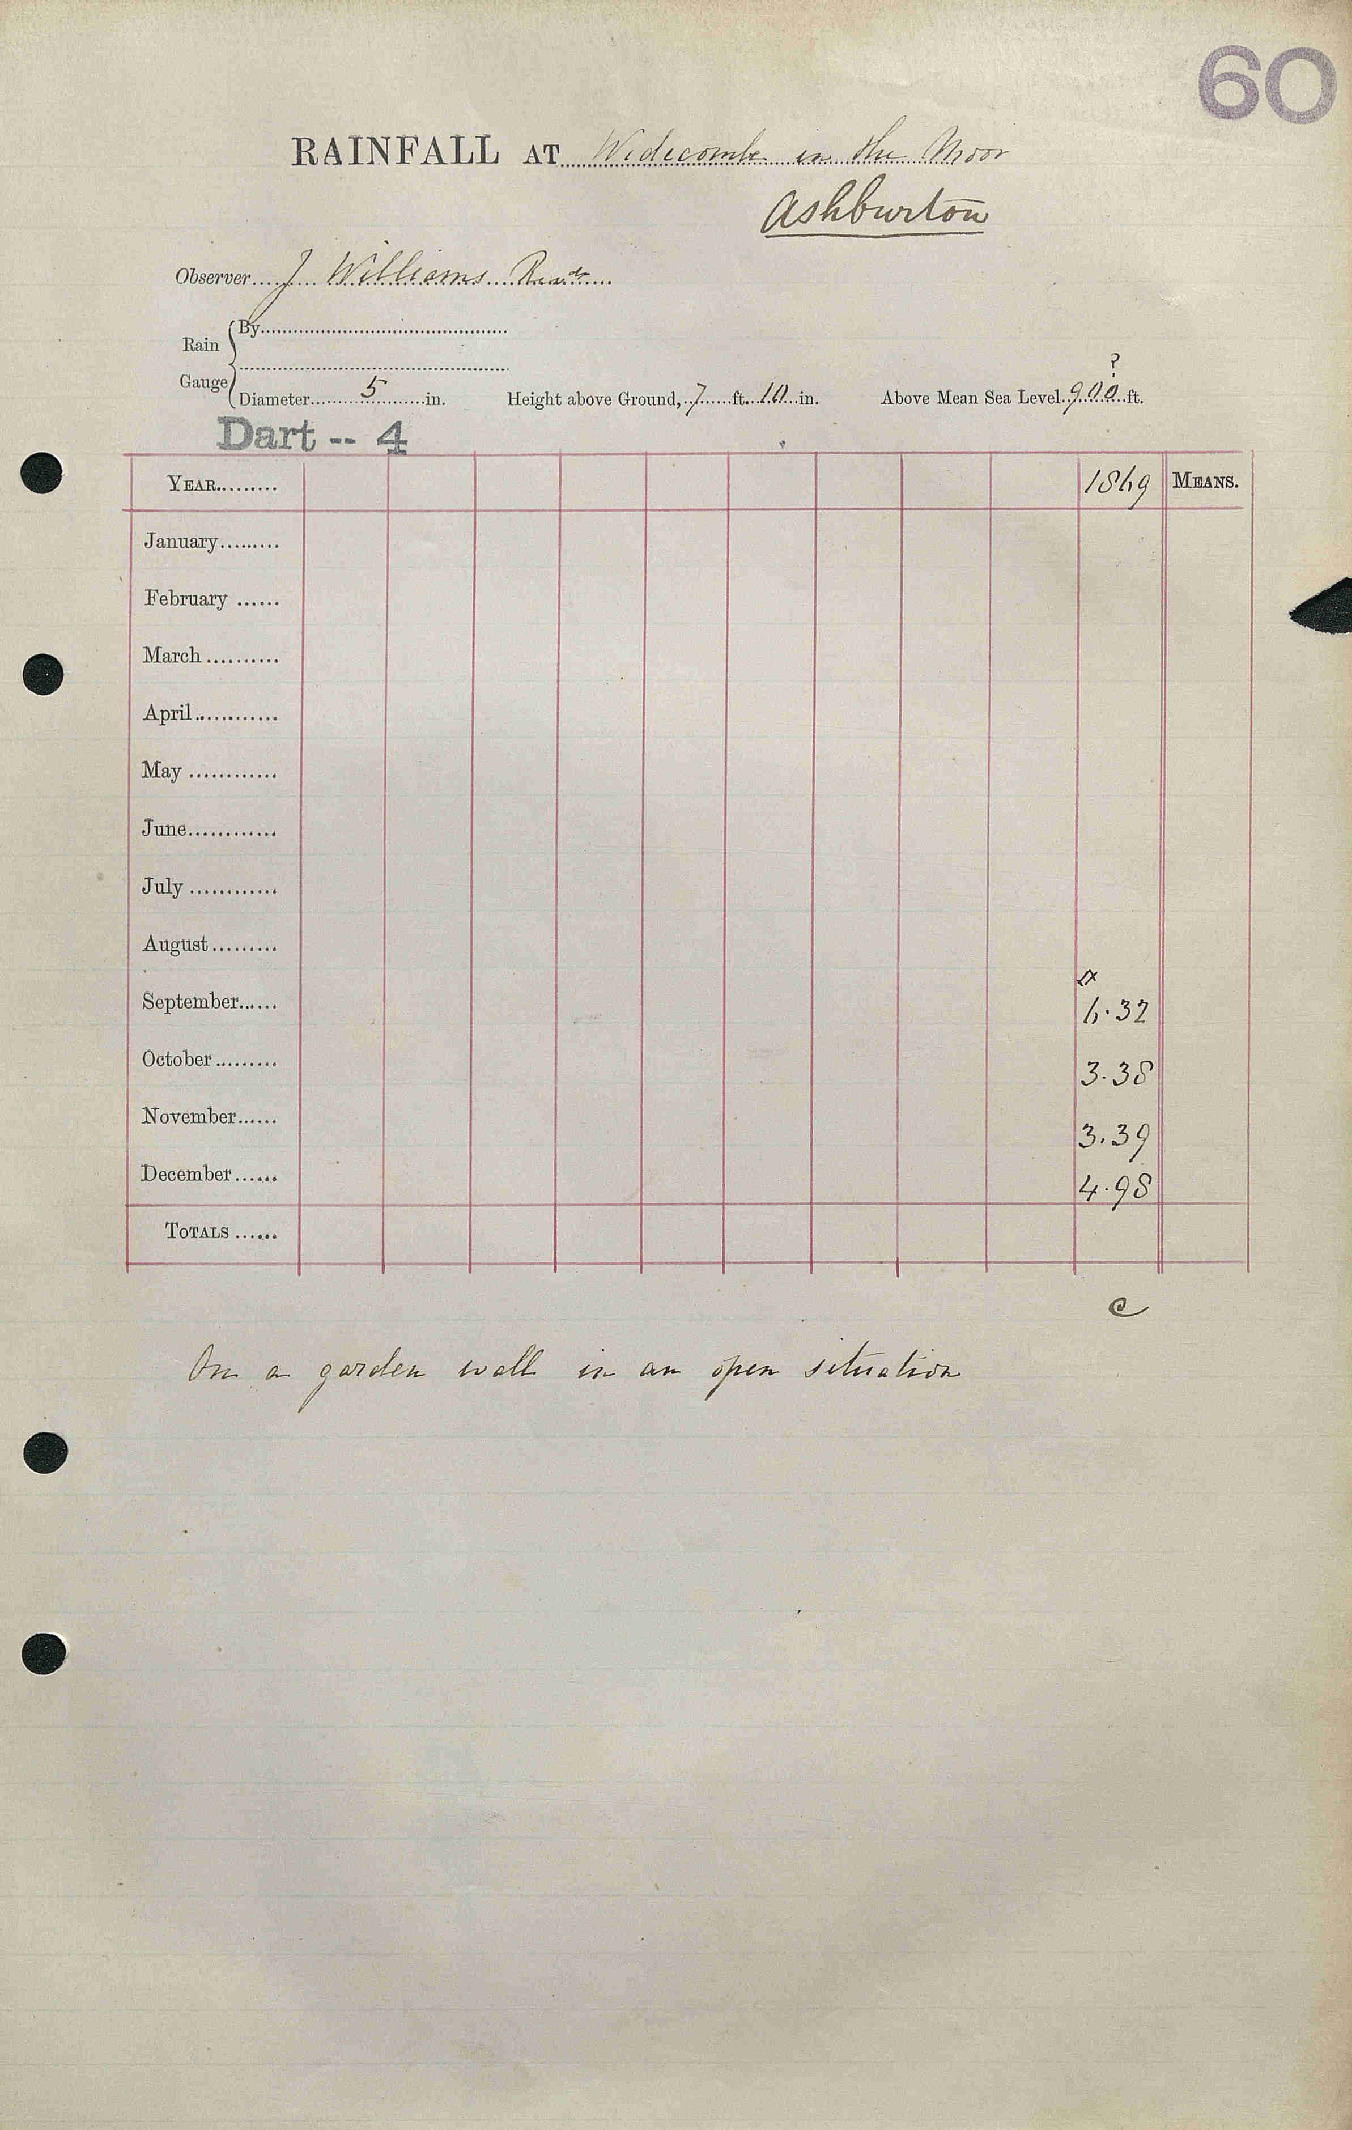 60
RAINFALL AT Widecombe in the Moor
Ashburton
Observer J Williams
Rain Gauge
By
Diameter 5 in. Height above Ground, 7 ft. 10 in. Above Mean Sea Level 900 ft.
?
Dart -- 4
YEAR 1869 MEANS.
January
February
March
April
May
June
July
August
x
September 6.32
October 3.38
November 3.39
December 4.98
TOTALS
C
On a garden wall in an open situation